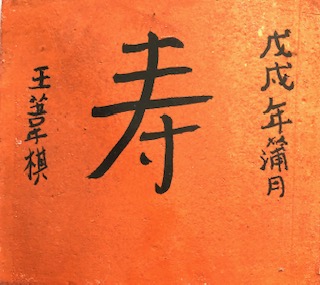 戊戌年蒲月
寿
王棋